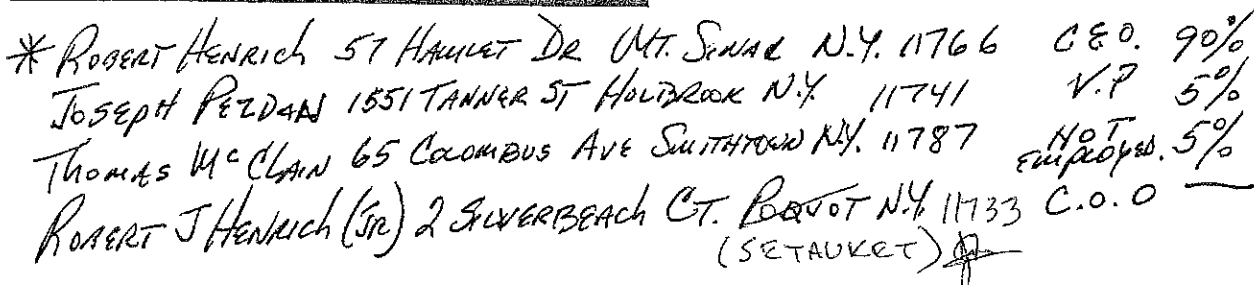 * ROBERT HENRICH 57 HAMLET DR MT. SINAI N.Y. 11766 C E O. 90%
JOSEPH PEZDAN 1551 TANNER ST HOLBROOK N.Y. 11741 V.P 5%
THOMAS McCLAIN 65 COLOMBUS AVE SMITHTOWN N.Y. 11787 NOT EMPLOYED. 5%
ROBERT J HENRICH (JR) 2 SILVERBEACH CT. POQUOT N.Y. 11733 C.O.O —
(SETAUKET)